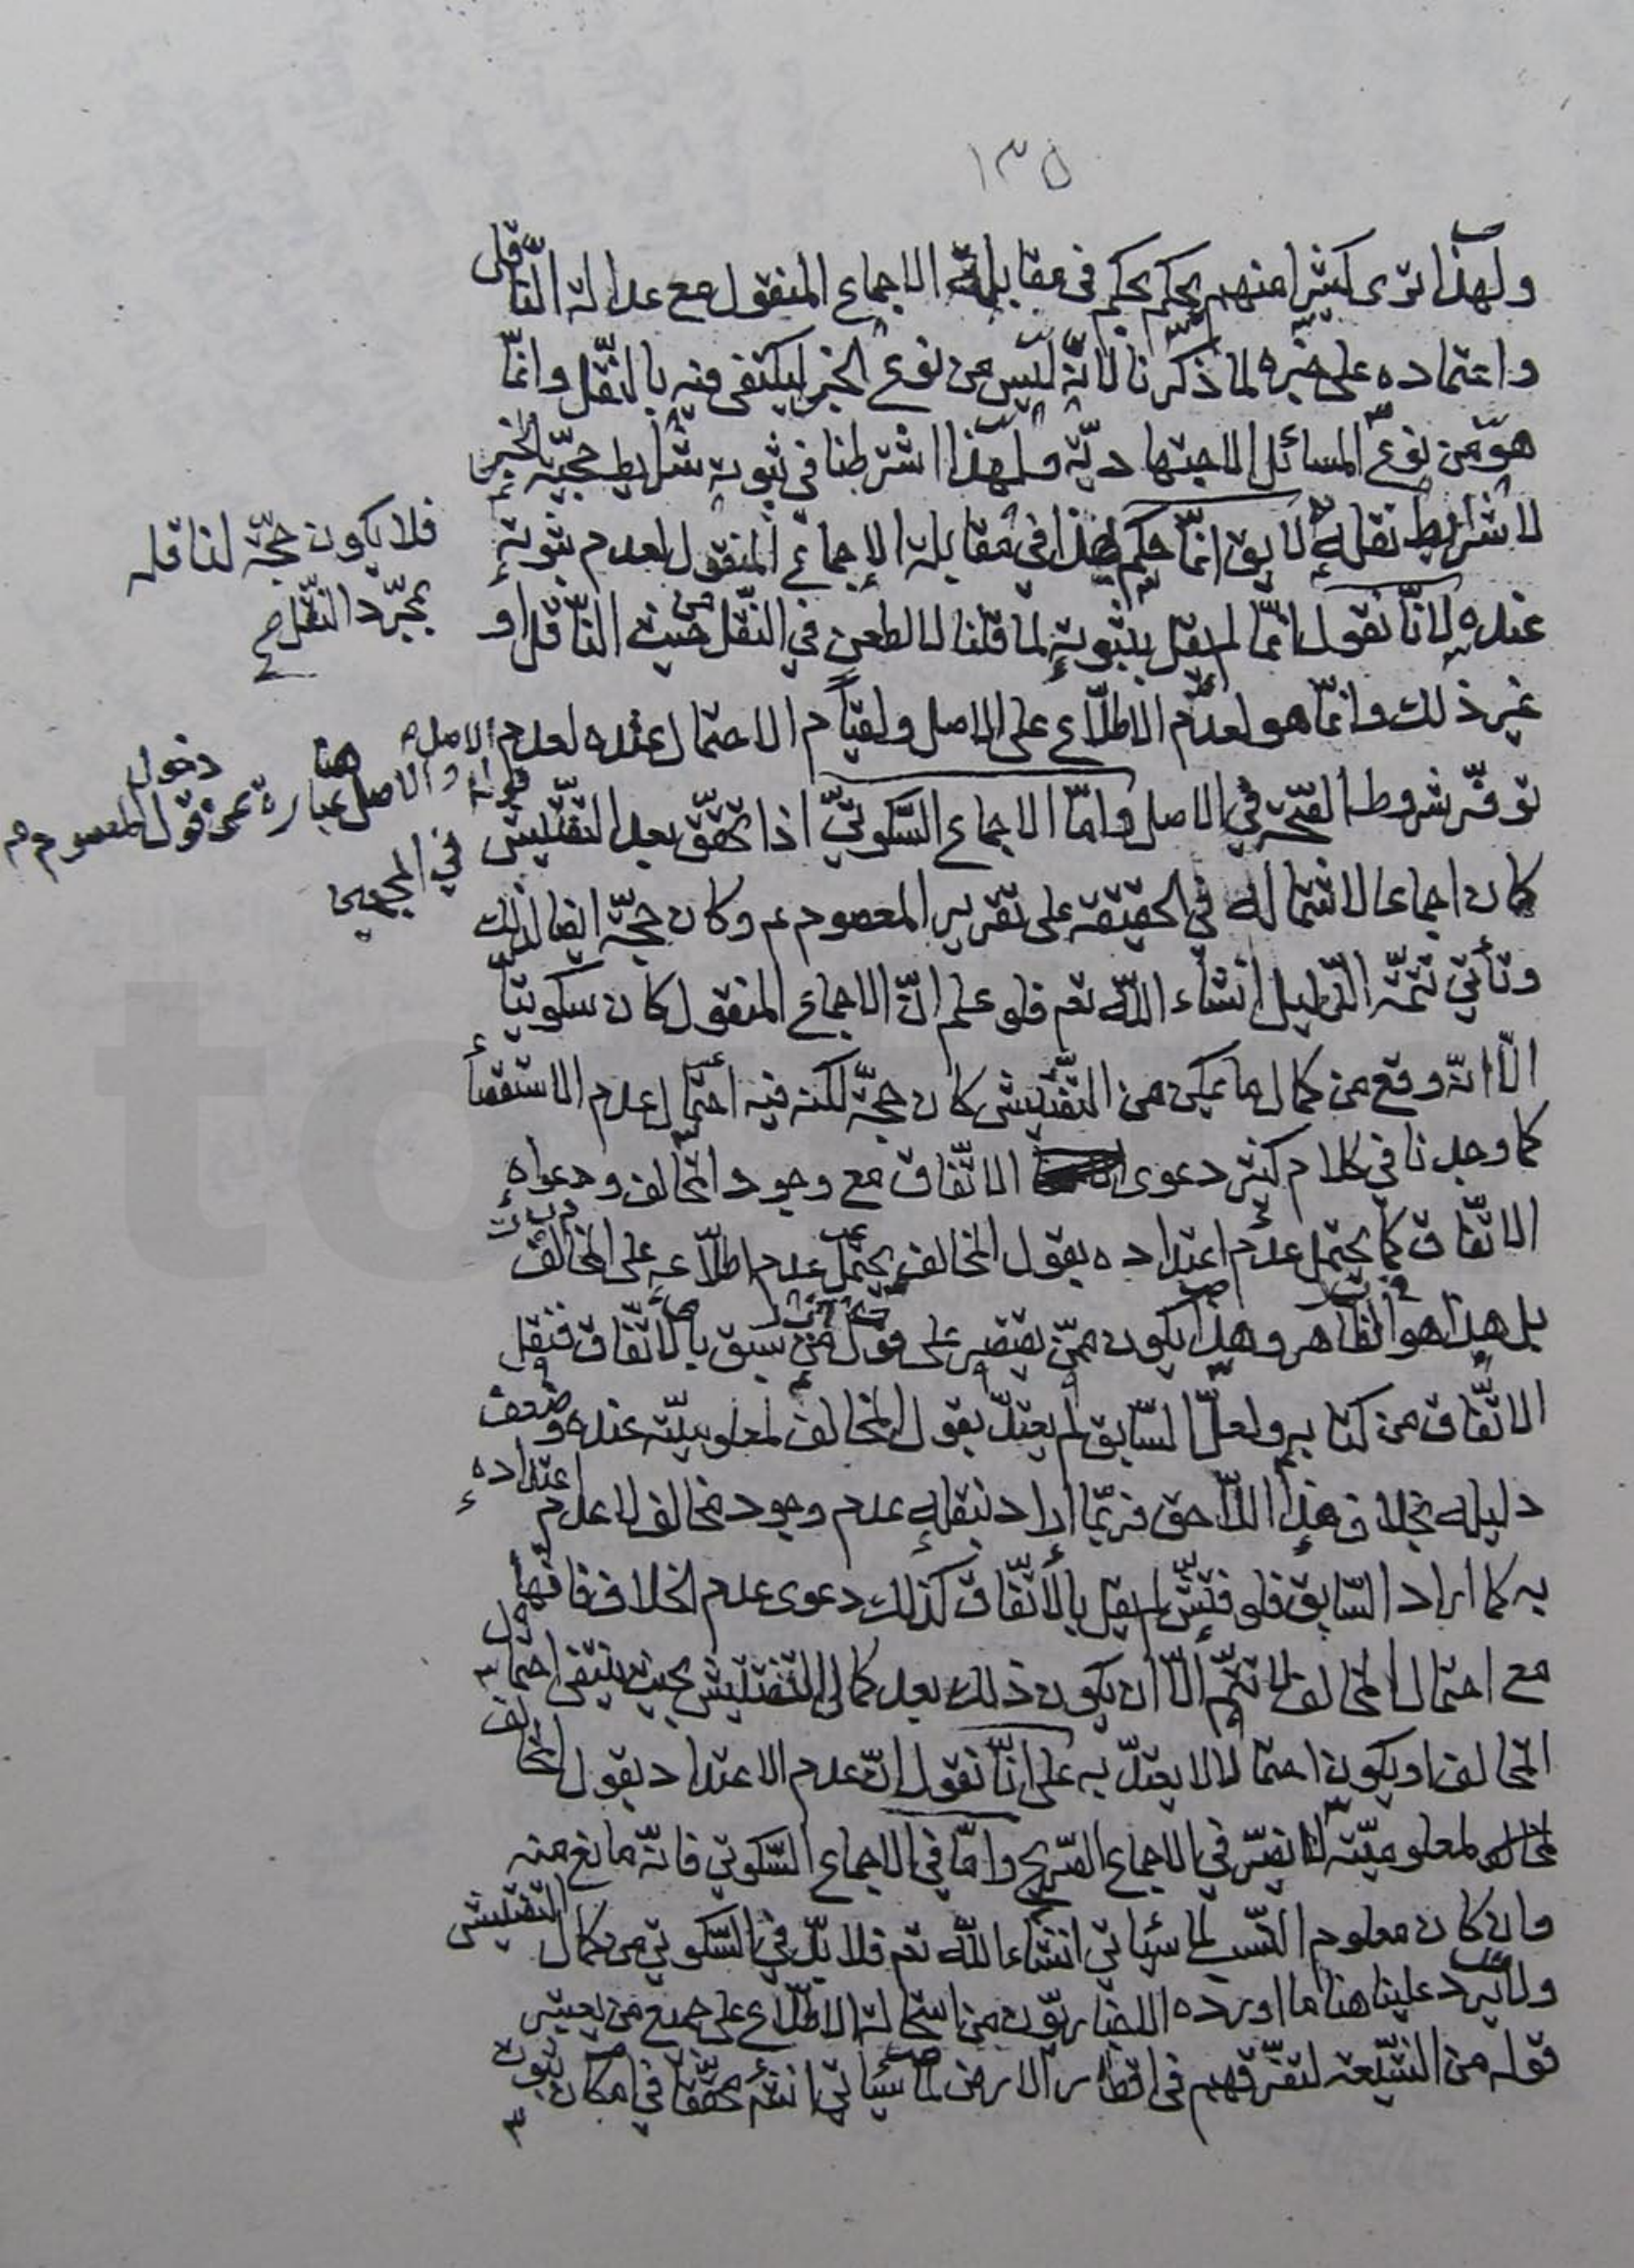 ١٣٥
ولهذا ترى كثيرا منهم يحكم بحكم في مقابلة الاجماع المنقول مع عدالة الناقل
واعتماده على خبره لما ذكرنا لانّه ليس من نوع الخبر ليكتفى فيه بالنّقل وانّما
هو من نوع المسائل الاجتهاديّة ولهذا اشترطنا في ثبوته شرايط حجيّة الخبر
لا شرايط نقله لا يق انّما حكم هذا في مقابلة الاجماع المنقول لعدم ثبوته
فلا يكون حجّة لناقله
بمجرّد النّقل صح
عنده لانّا نقول انّما لم يقل بثبوته لما قلنا لا لطعن في النّقل من حيث النّاقل او
غير ذلك وانّما هو لعدم الاطّلاع على الاصل ولقيام الاحتمال عنده لعدم
والاصل هنا عبارة عن دخول قول المعصوم م
في المجمعين
توفّر شروط الصّحة في الاصل وامّا الاجماع السّكوتيّ اذا تحقّق بعد التّفتيش
كان اجماعا لاشتماله في الحقيقة على تقرير المعصوم عم وكان حجّة ايضا لذلك
وتأتي تتمّة الدّليل انشاء اللّه تعم فلو علم انّ الاجماع المنقول كان سكوتيّا
الّا انّه وقع من كمال ما يمكن من التّفتيش كان حجّة لكنه فيه احتمال عدم الاستقصاء
كما وجدنا في كلام كثير دعوى الاتّفاق مع وجود المخالف ودعواه
الاتّفاق كما يحتمل عدم اعتداده بقول المخالف يحتمل عدم اطّلاعه على المخالف
بل هذا هو الظاهر وهذا يكون ممّن يقتصر على قول من سبق بالاتّفاق فنقل
الاتّفاق من كتابه ولعلّ السّابق لم يعتدّ بقول المخالف لمعلوميّته عنده وضعف
دليله بخلاف هذا اللّاحق فربّما اراد بنقله عدم وجود مخالف لا عدم اعتداده
به كما اراد السّابق فلو فتّش لم يقل بالاتّفاق كذلك دعوى عدم الخلاف فانّها
مع احتمال المخالف لا تتمّ الّا ان يكون ذلك بعد كمال التّفتيش بحيث ينتفى احتمال
المخالف او يكون احتمالا لا يعتدّ به على انّا نقول انّ عدم الاعتداد بقول المخالف
لمعلوميّته انّما يضرّ في الاجماع الصّريح وامّا في الاجماع السّكوتي فانّه مانع منه
وان كان معلوم النّسب لما سيأتي انشاء اللّه تعم فلا بدّ في السّكوتي من كمال التّفتيش
ولا يرد علينا هنا ما اورده الاخباريّون من استحالة الاطّلاع على جميع من يعتبر
قوله من الشّيعة لتفرّقهم في اقطار الارض لما سيأتي انشه محقّقا في امكان ثبوت